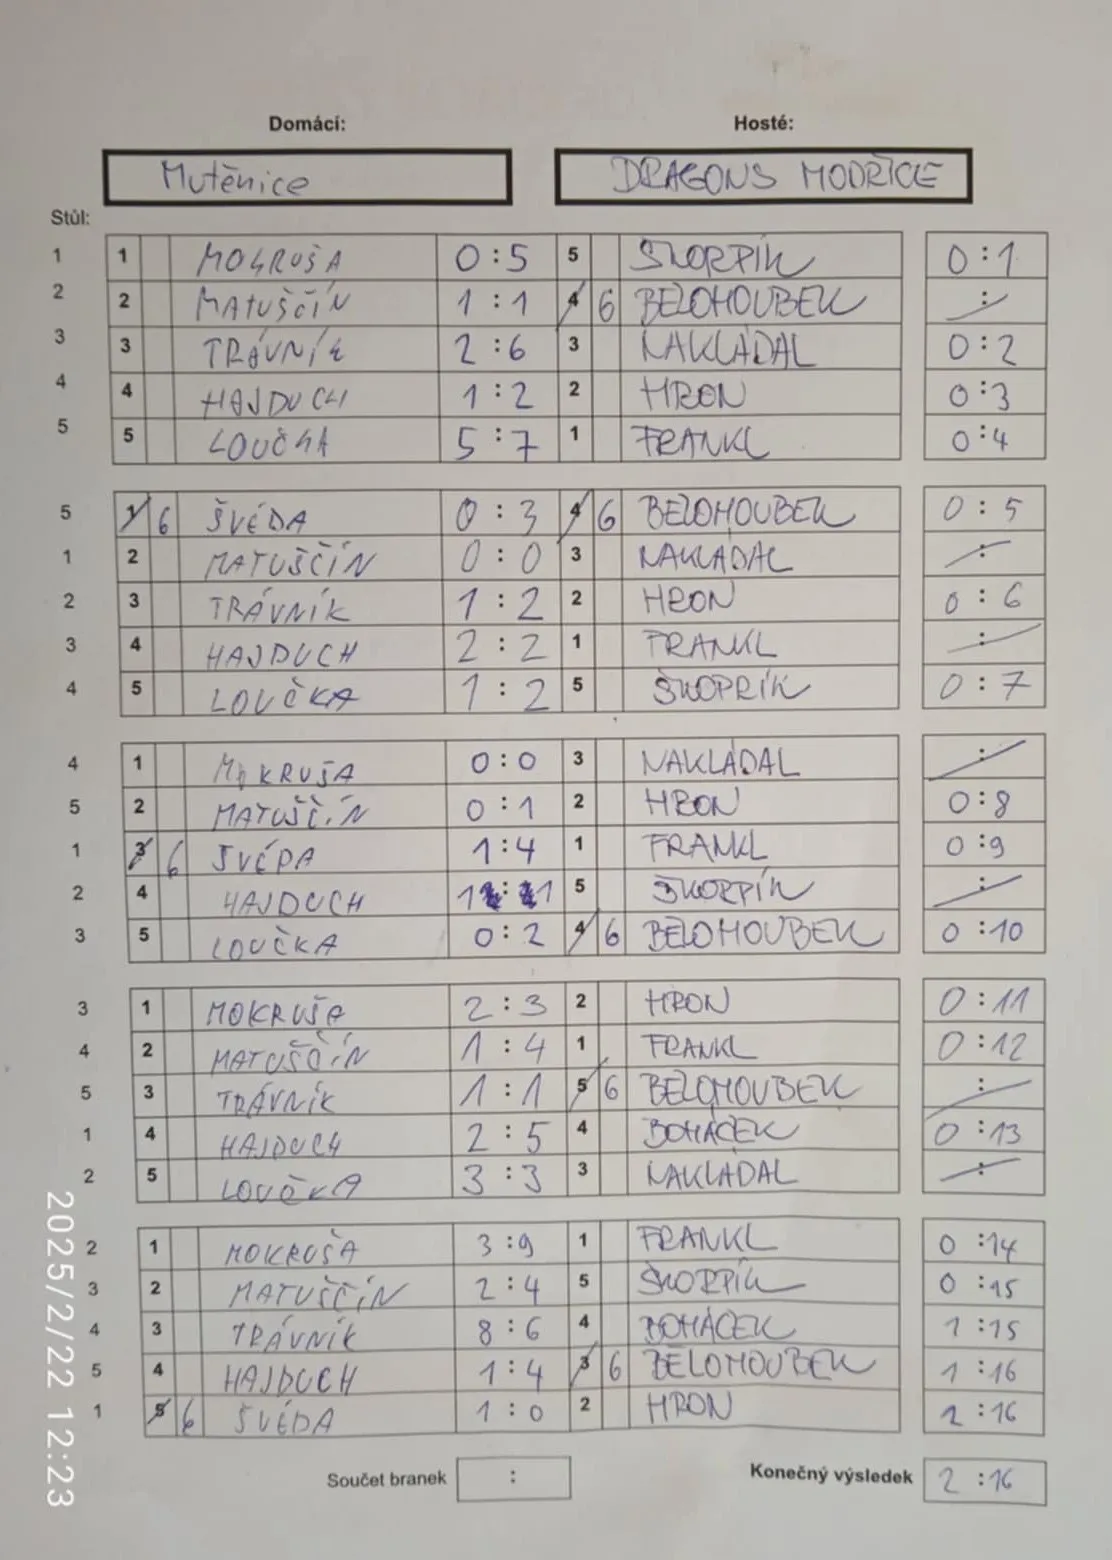 Domácí: Hosté:
Mutěnice DRAGONS MODŘICE
Stůl:
1 1 MOKRUŠA 0:5 5 ŠKORPÍK 0:1
2 2 MATUŠČÍN 1:1 4 6 BĚLOHOUBEK :
3 3 TRÁVNÍK 2:6 3 NAKLÁDAL 0:2
4 4 HAJDUCH 1:2 2 HRON 0:3
5 5 LOUČKA 5:7 1 FRANKL 0:4
5 1 6 ŠVÉDA 0:3 4 6 BELOHOUBEK 0:5
1 2 MATUŠČÍN 0:0 3 NAKLÁDAL :
2 3 TRÁVNÍK 1:2 2 HRON 0:6
3 4 HAJDUCH 2:2 1 FRANKL :
4 5 LOUČKA 1:2 5 ŠKOPRÍK 0:7
4 1 MOKRUŠA 0:0 3 NAKLÁDAL :
5 2 MATUŠČÍN 0:1 2 HRON 0:8
1 3 6 ŠVÉDA 1:4 1 FRANKL 0:9
2 4 HAJDUCH 1:1 5 ŠKORPÍK :
3 5 LOUČKA 0:2 4 6 BELOHOUBEK 0:10
3 1 MOKRUŠA 2:3 2 HRON 0:11
4 2 MATUŠČÍN 1:4 1 FRANKL 0:12
5 3 TRÁVNÍK 1:1 5 6 BELOHOUBEK :
1 4 HAJDUCH 2:5 4 BOHÁČEK 0:13
2 5 LOUČKA 3:3 3 NAKLÁDAL :
2 1 MOKRUŠA 3:9 1 FRANKL 0:14
3 2 MATUŠČÍN 2:4 5 ŠKORPÍK 0:15
4 3 TRÁVNÍK 8:6 4 BOHÁČEK 1:15
5 4 HAJDUCH 1:4 3 6 BĚLOHOUBEK 1:16
1 5 6 ŠVÉDA 1:0 2 HRON 2:16
Součet branek : Konečný výsledek 2:16
2025/2/22 12:23